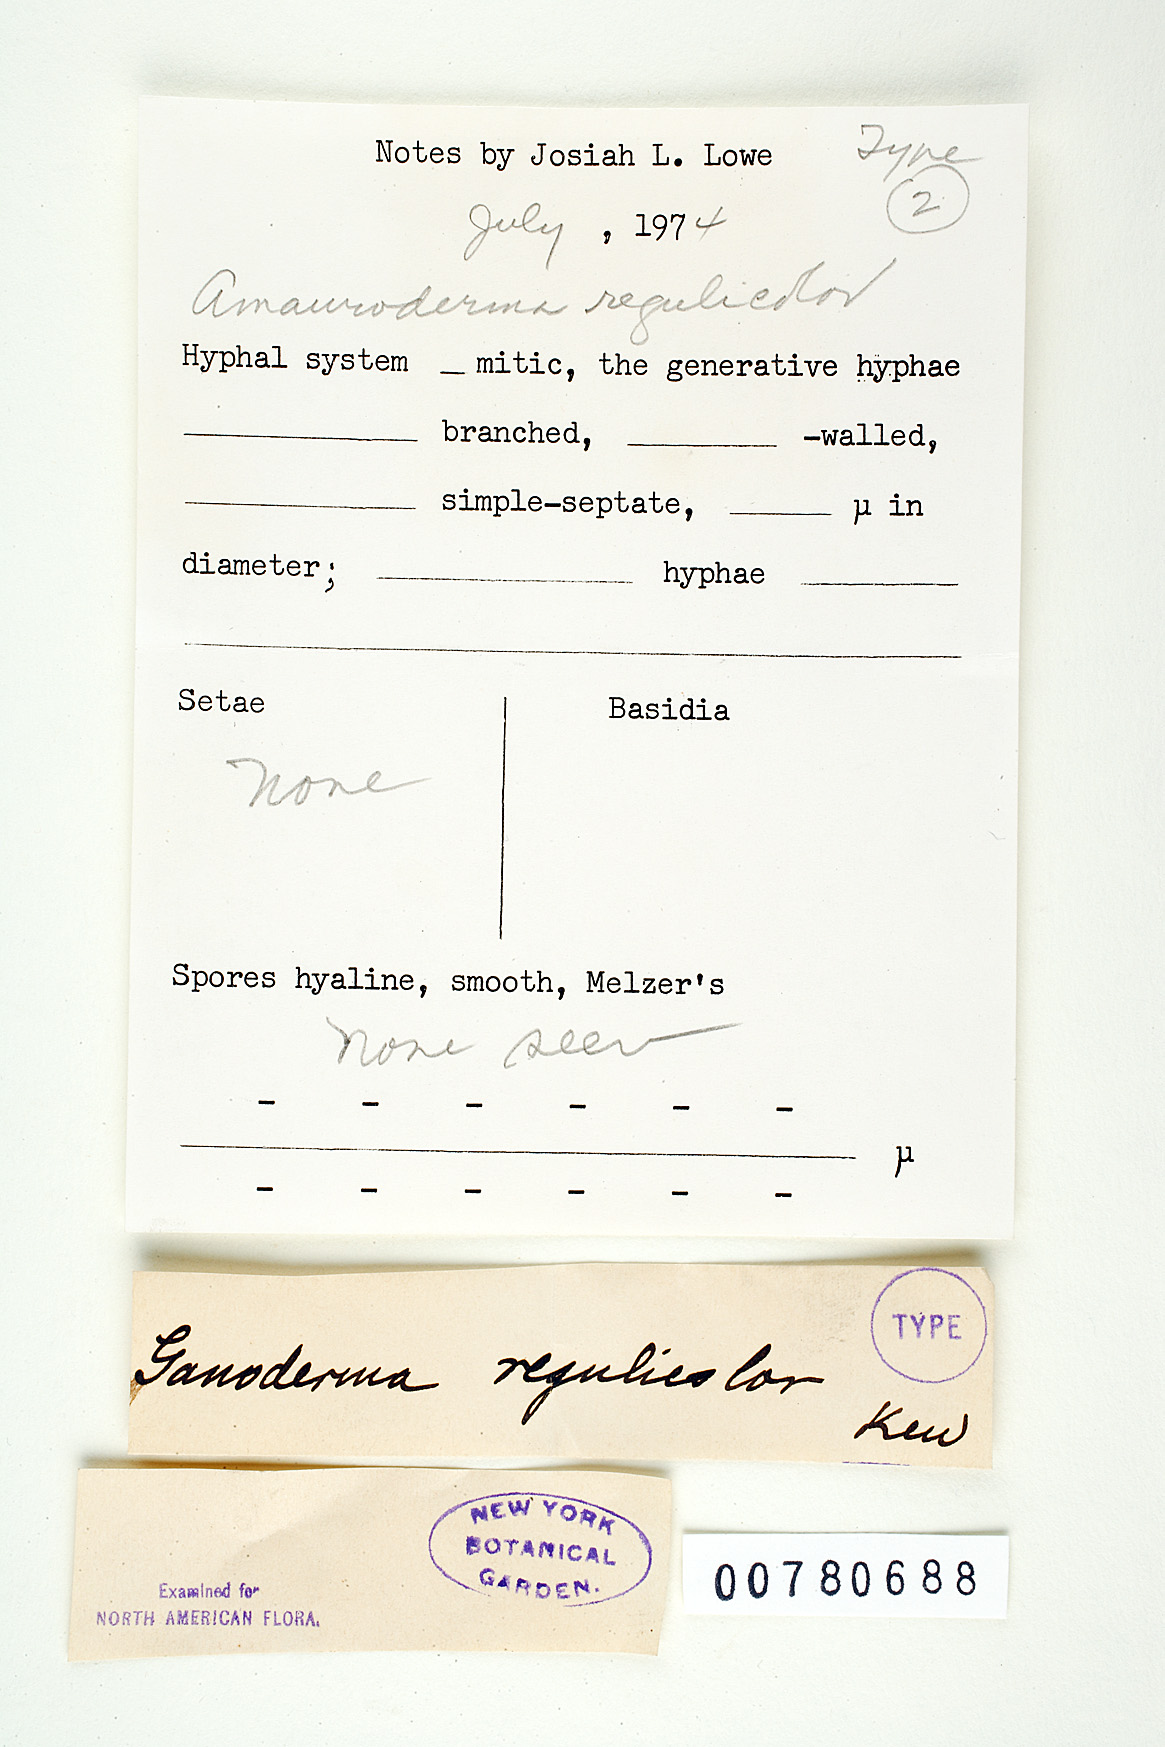 Notes by Josiah L. Lowe
Type
2
July , 1974
Amauroderma regulicolor
Hyphal system _ mitic, the generative hyphae
____ branched, ____ -walled,
____ simple-septate, ____ µ in
diameter; ____ hyphae ____
Setae
Basidia
None
Spores hyaline, smooth, Melzer's
None seen
- - - - - -
____ µ
- - - - - -
TYPE
Ganoderma regulicolor
Kew
NEW YORK
BOTANICAL
GARDEN.
Examined for
NORTH AMERICAN FLORA.
00780688